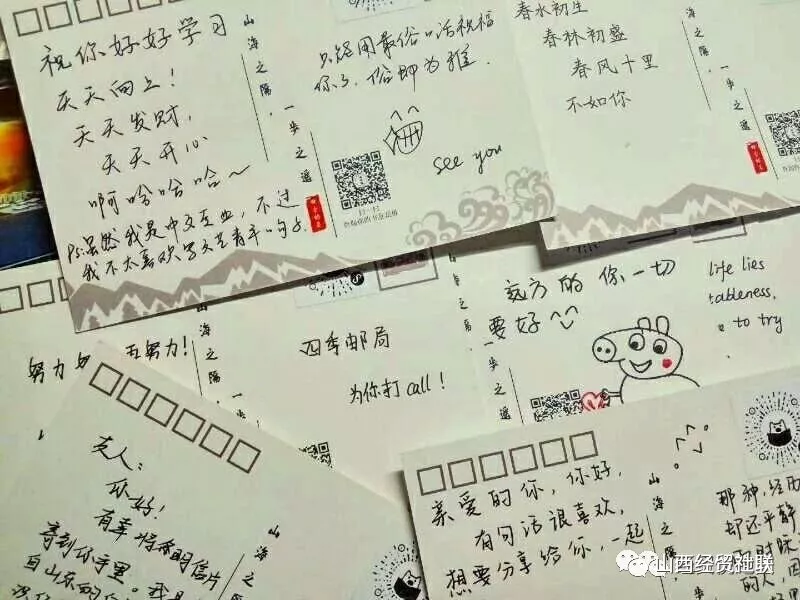 祝你好好学习
天天向上!
天天发财,
天天开心
啊哈哈哈～
Ps:虽然我是中文专业，不过
我不太喜欢写文艺青年的句子.
山海之隔，一步之遥
只能用最俗的话祝福
你了，俗即为雅.
see you
扫一扫
春水初生
春林初盛
春风十里
不如你
山海之隔，一步之遥
努力
努力!
山海之隔，一
四季邮局
为你打call!
一步之遥
远方的你一切
要好^^
life lies
tableness,
to try
友人:
你好!
有幸将命明信片
寄到你手里。我是
自山东的
山海之
亲爱的你，你好，
有句话很喜欢，
想要分享给你，一起
山海之隔
那种，经历
却还平静
的人，因
山西经贸社联